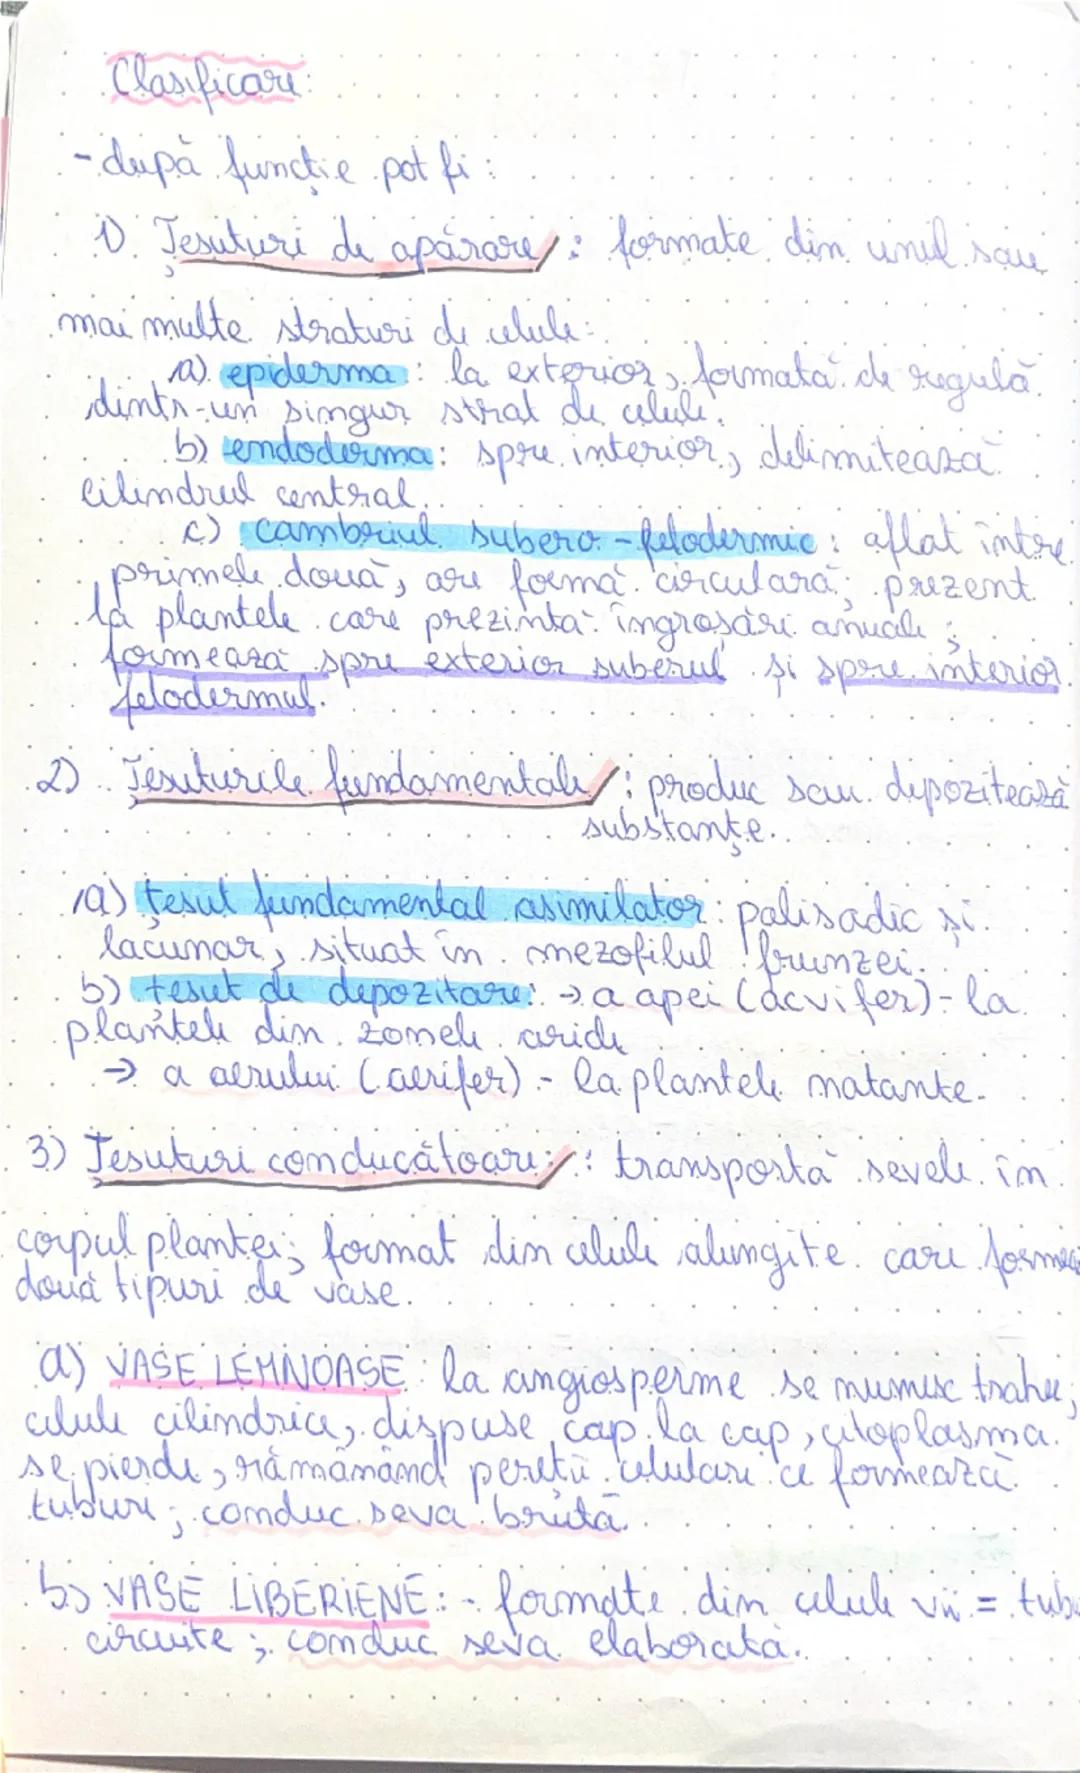 Clasificare:
- după funcție pot fi:
1). Țesuturi de apărare: formate din unul sau
mai multe straturi de celule:
a). epiderma: la exterior, formată de regulă
dintr-un singur strat de celule.
b) endoderma: spre interior, delimitează
cilindrul central.
c) cambiul subero-felodermic: aflat între
primele două, are formă circulară; prezent
la plantele care prezintă îngroșări anuale;
formează spre exterior suberul și spre interior
felodermul.
2). Țesuturile fundamentale: produc sau depozitează
substanțe.
a) țesut fundamental asimilator: palisadic și
lacunar, situat în mezofilul frunzei.
b) țesut de depozitare: → a apei (acvifer) - la
plantele din zonele aride
→ a aerului (aerifer) - la plantele natante.
3) Țesuturi conducătoare: transportă sevele în
corpul plantei; format din celule alungite care formea
două tipuri de vase.
a) VASE LEMNOASE: la angiosperme se numesc trahee;
celule cilindrice, dispuse cap la cap, citoplasma
se pierde, rămânând pereții celulari ce formează
tuburi; conduc seva brută.
b) VASE LIBERIENE: - formate din celule vii = tubu
ciruite; conduc seva elaborată.